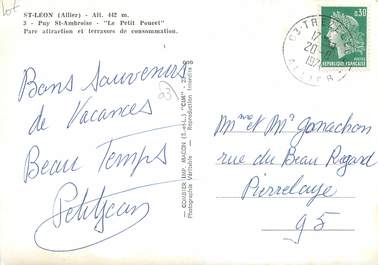 Lot
ST-LÉON (Allier) - Alt. 442 m.
3 - Puy St-Ambroise - "Le Petit Poucet"
Parc attraction et terrasses de consommation.
Bons Souvenirs
de Vacances
Beau Temps
Petitjean
COMBIER IMP. MACON (S.-&-L.) "CIM"
Photographie Véritable - Reproduction Interdite
03 TR
17
20-
197
ALLIER
0,30
REPUBLIQUE FRANÇAISE
Mme et Mr Gonachon
rue du Beau Regard
Pierrelaye
95